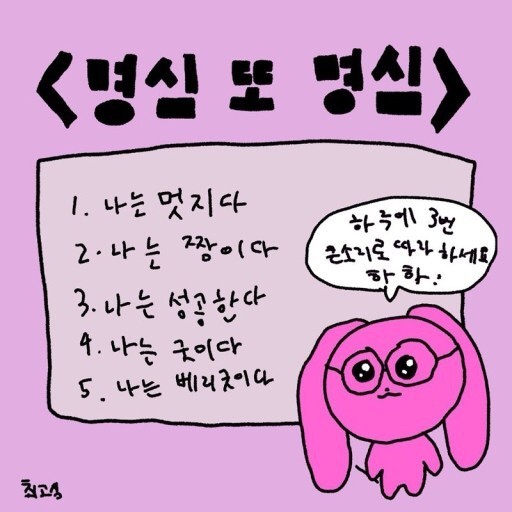 <명심 또 명심>
1. 나는 멋지다
2. 나는 짱이다
3. 나는 성공한다
4. 나는 굿이다
5. 나는 베리굿이다
하루에 3번
큰소리로 따라 하세요
하 하!
최고심